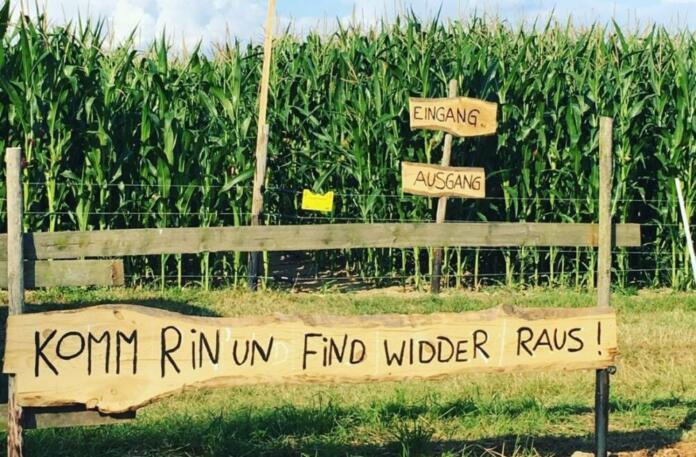 EINGANG
AUSGANG
KOMM RIN'UN FIND WIDDER RAUS!